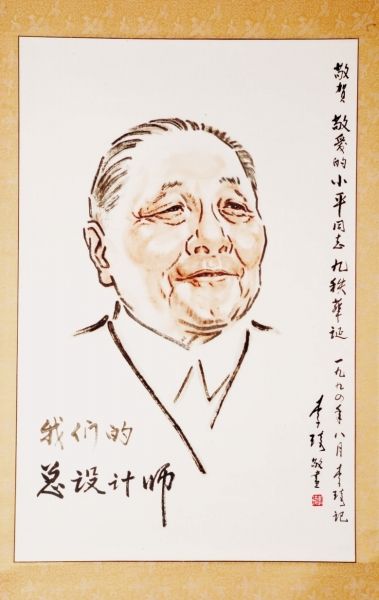 敬賀 敬爱的小平同志九秩華诞 一九九四年八月 李琦记
李琦敬画
我们的
总设计师